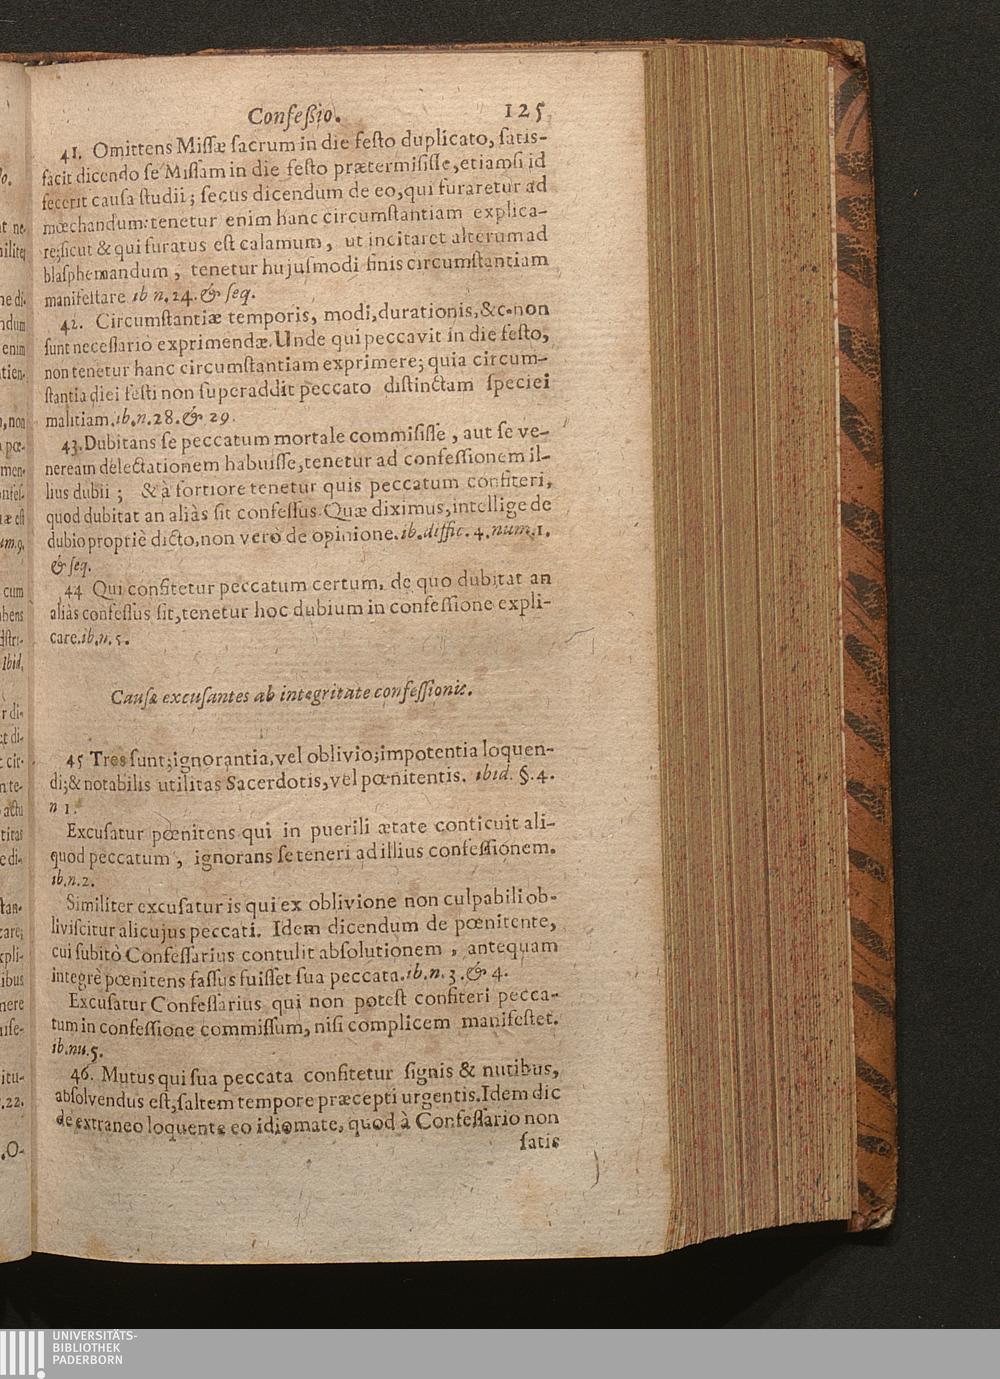 Confeßio. 125
41. Omittens Missæ sacrum in die festo duplicato, satis-
facit dicendo se Missam in die festo prætermisisse, etiamsi id
fecerit causa studii; secus dicendum de eo, qui furaretur ad
mœchandum: tenetur enim hanc circumstantiam explica-
re; sicut & qui furatus est calamum, ut incitaret alterum ad
blasphemandum, tenetur hujusmodi finis circumstantiam
manifestare ib n. 24. & seq.
42. Circumstantiæ temporis, modi, durationis, &c. non
sunt necessariò exprimendæ. Unde qui peccavit in die festo,
non tenetur hanc circumstantiam exprimere; quia circum-
stantia diei festi non superaddit peccato distinctam speciei
malitiam. ib. n. 28. & 29.
43. Dubitans se peccatum mortale commisisse, aut se ve-
neream delectationem habuisse, tenetur ad confessionem il-
lius dubii; & à fortiore tenetur quis peccatum confiteri,
quod dubitat an aliàs sit confessus. Quæ diximus, intellige de
dubio propriè dicto, non verò de opinione. ib. diffic. 4. num. 1.
& seq.
44 Qui confitetur peccatum certum, de quo dubitat an
aliàs confessus sit, tenetur hoc dubium in confessione expli-
care. ib. n. 5.
Causæ excusantes ab integritate confessionis.
45 Tres sunt; ignorantia, vel oblivio; impotentia loquen-
di; & notabilis utilitas Sacerdotis, vel pœnitentis. ibid. §. 4.
n 1.
Excusatur pœnitens qui in puerili ætate conticuit ali-
quod peccatum, ignorans se teneri ad illius confessionem.
ib. n. 2.
Similiter excusatur is qui ex oblivione non culpabili ob-
liviscitur alicujus peccati. Idem dicendum de pœnitente,
cui subitò Confessarius contulit absolutionem, antequam
integrè pœnitens fassus fuisset sua peccata. ib. n. 3. & 4.
Excusatur Confessarius qui non potest confiteri pecca-
tum in confessione commissum, nisi complicem manifestet.
ib. nu. 5.
46. Mutus qui sua peccata confitetur signis & nutibus,
absolvendus est, saltem tempore præcepti urgentis. Idem dic
de extraneo loquente eo idiomate, quod à Confessario non
satis
UNIVERSITÄTS-
BIBLIOTHEK
PADERBORN